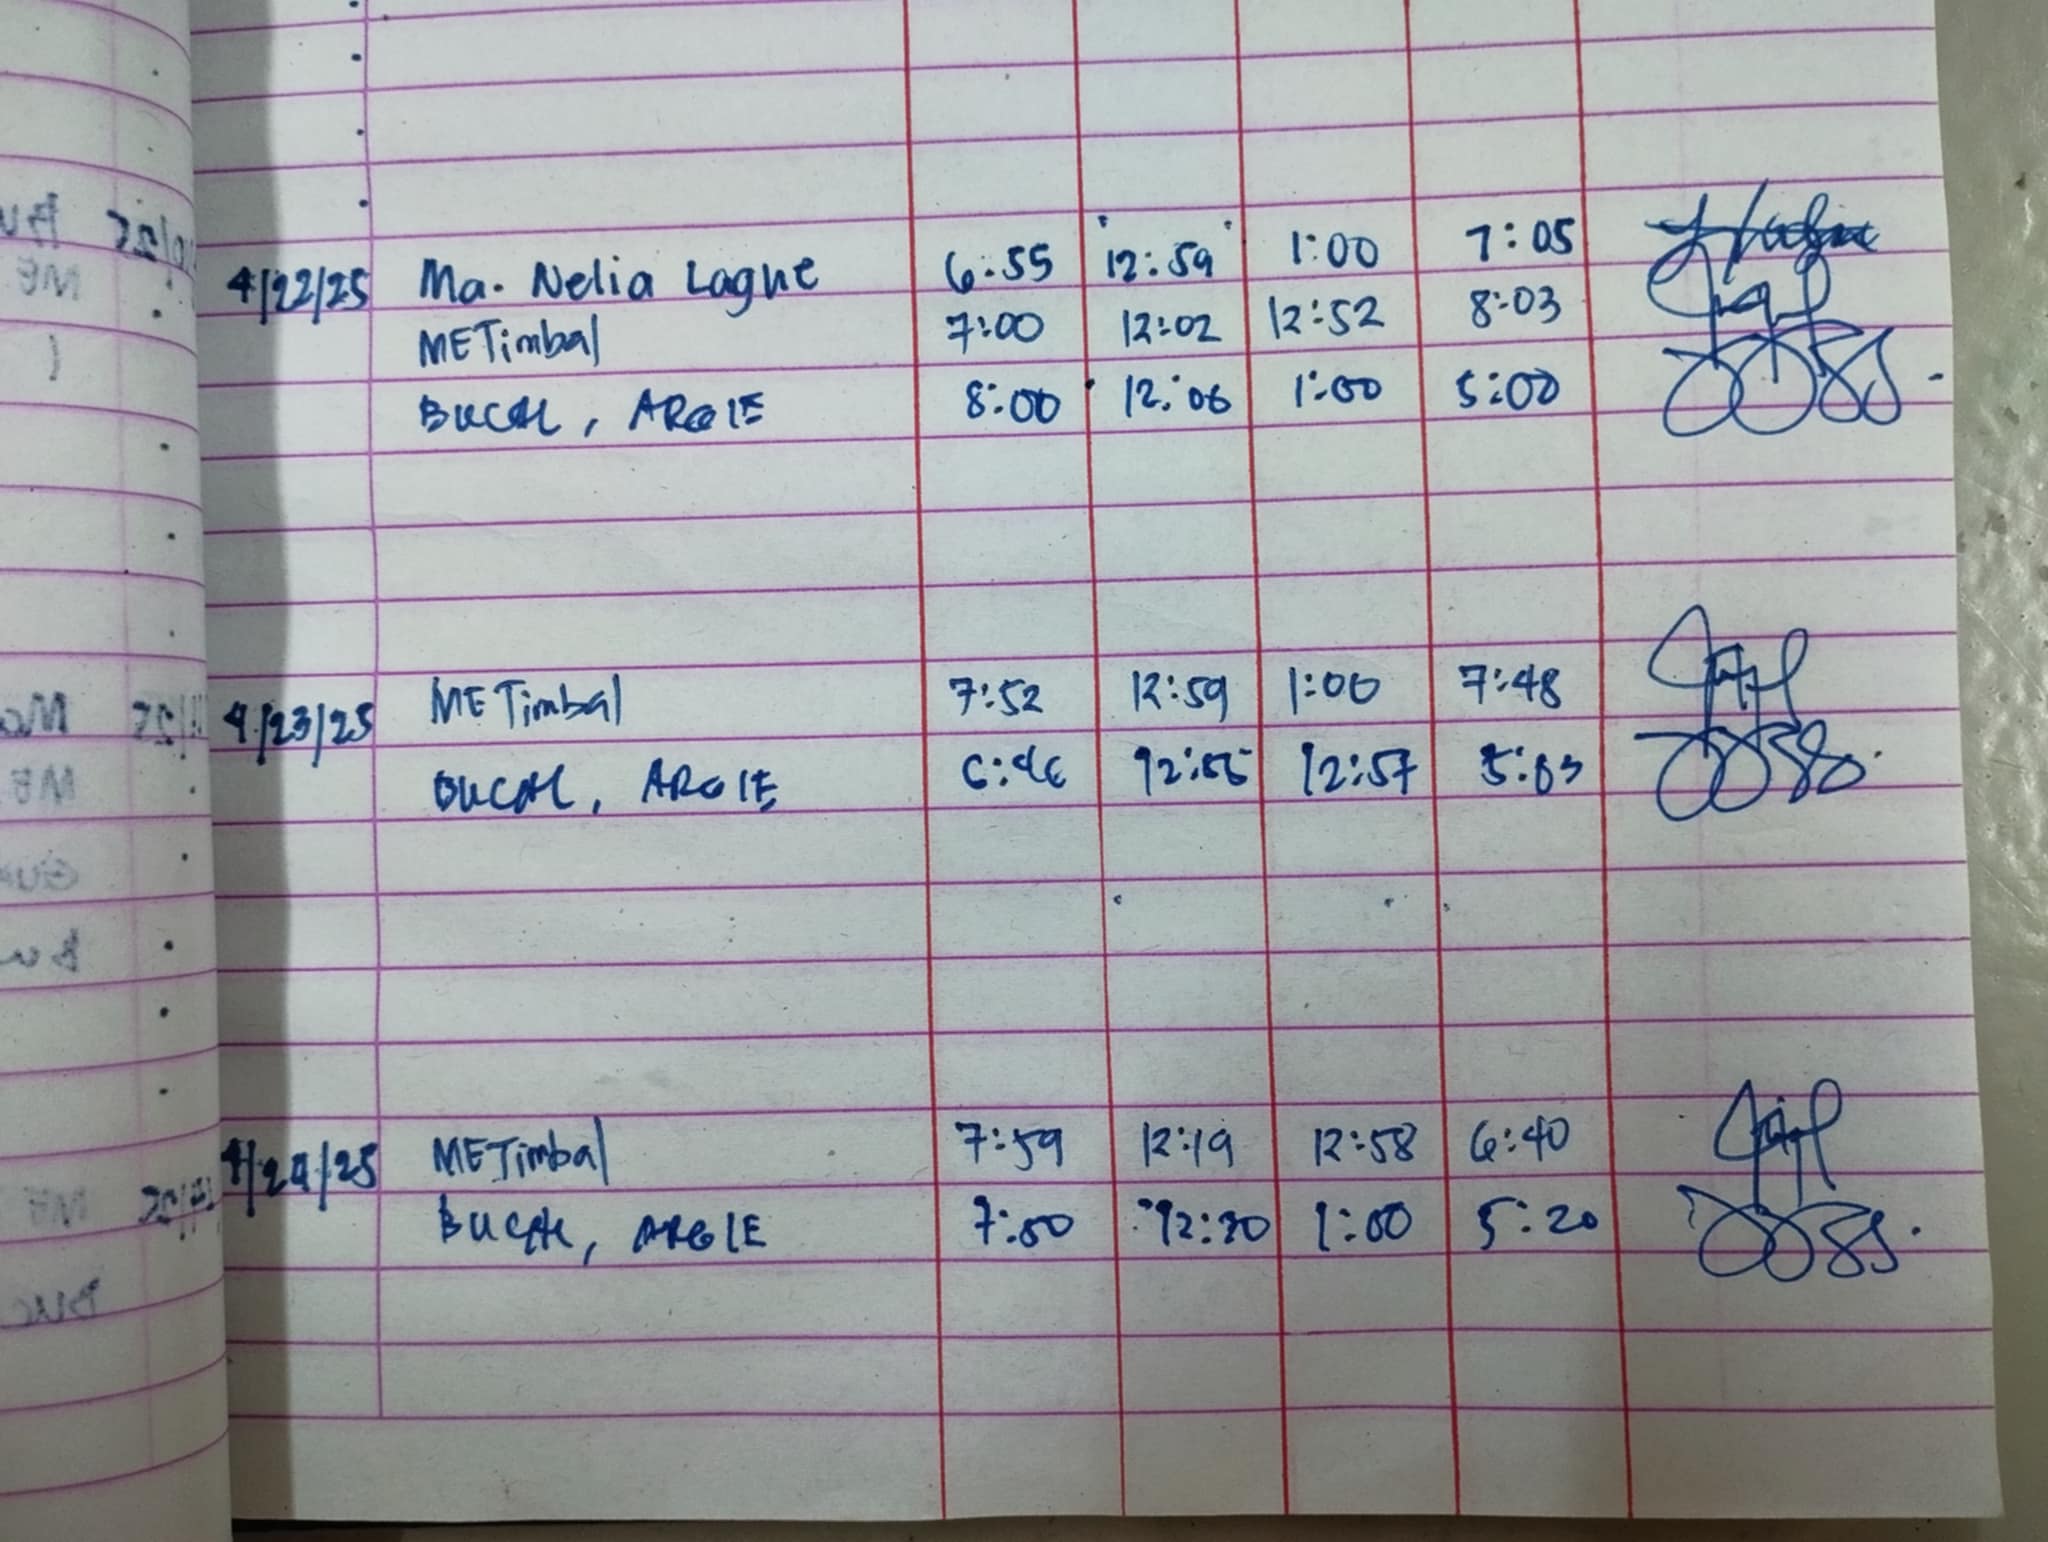 4/22/25 Ma. Nelia Lague 6:55 12:59 1:00 7:05
METimbal 7:00 12:02 12:52 8:03
BUCAL, ARGIE 8:00 12:06 1:00 5:00
4/23/25 METimbal 7:52 12:59 1:00 7:48
BUCAL, ARGIE 6:46 12:57 5:03
4/24/25 METimbal 7:59 12:19 12:58 6:40
BUCAL, ARGIE 7:50 1:00 5:20